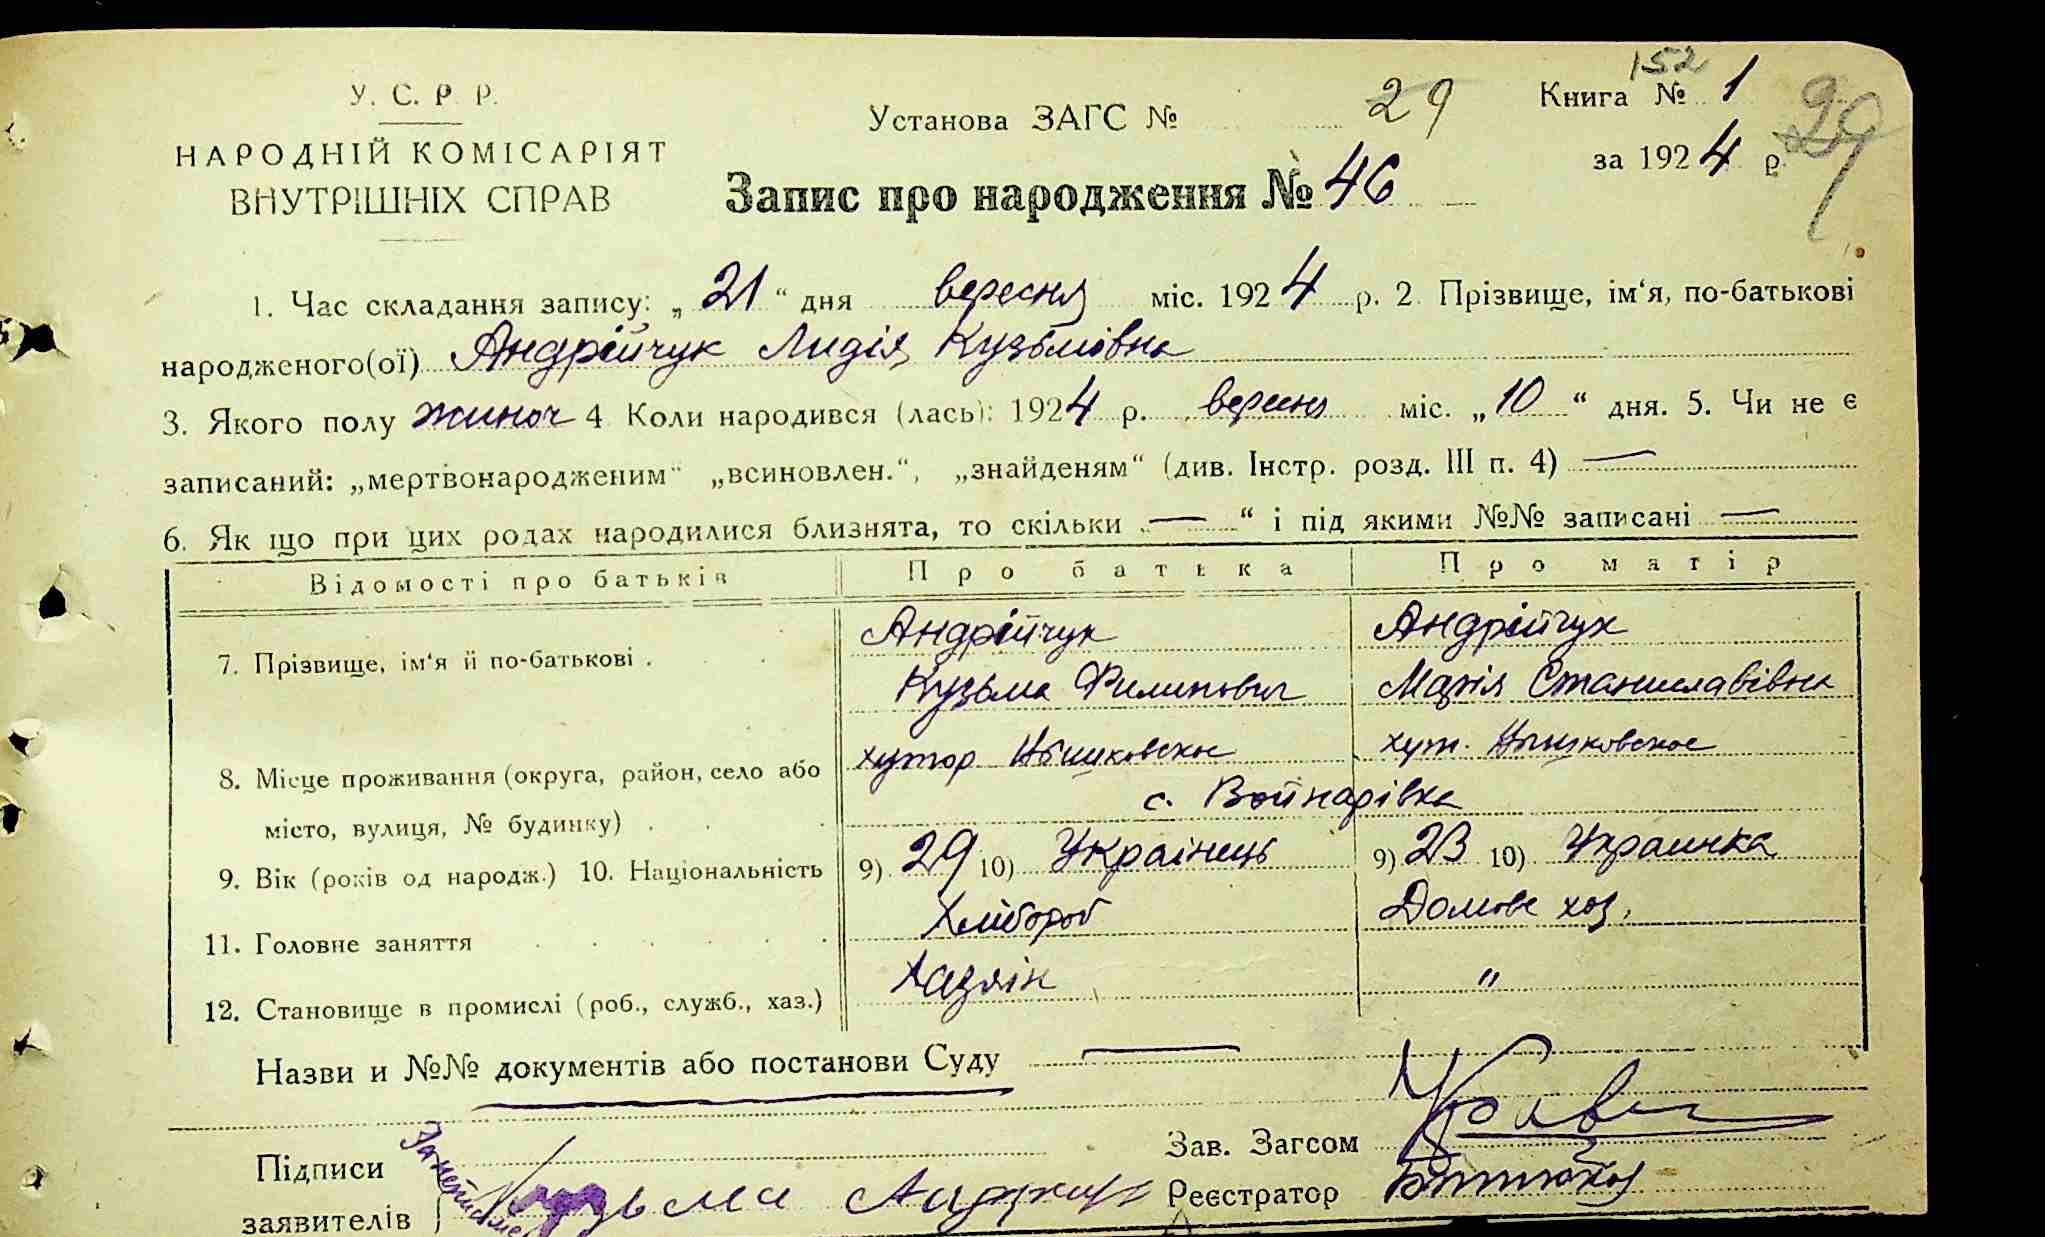 152
У. С. Р. Р.
Установа ЗАГС № 29
Книга № 1
29
НАРОДНІЙ КОМІСАРІЯТ
ВНУТРІШНІХ СПРАВ
за 1924 р.
Запис про народження № 46
1. Час складання запису: „21“ дня вересня міс. 1924 р. 2. Прізвище, ім‘я, по-батькові
народженого(ої) Андрійчук Лидія Кузьмівна
3. Якого полу жиноч 4 Коли народився (лась): 1924 р. вересня міс. „10“ дня. 5. Чи не є
записаний: „мертвонародженим“ „всиновлен.“, „знайденям“ (див. Інстр. розд. III п. 4) —
6. Як що при цих родах народилися близнята, то скільки „—“ і під якими №№ записані —
Відомості про батьків Про батька Про матір
Андрійчук Андрійчук
7. Прізвище, ім‘я й по-батькові .
Кузьма Филипович Марія Станиславівна
хутор хут.
8. Місце проживання (округа, район, село або
с. Войнарівка
місто, вулиця, № будинку) .
9. Вік (років од народж.) 10. Національність 9) 29 10) Українець 9) 23 10) Украинка
Хлібороб Домове хоз.
11. Головне заняття
Хазяїн "
12. Становище в промислі (роб., служб., хаз.)
Назви и №№ документів або постанови Суду —
Зав. Загсом
Підписи
заявителів
Кузьма
Реєстратор